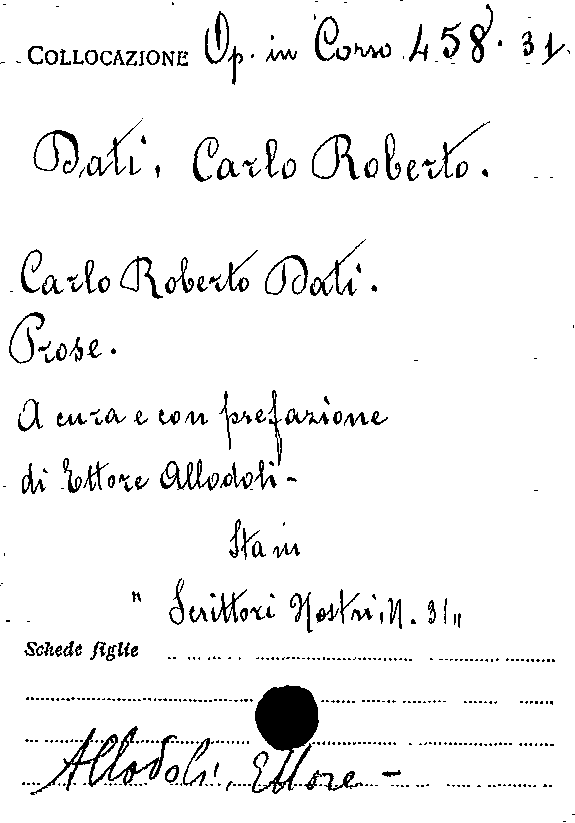 COLLOCAZIONE Op. in Corso 458. 31.
Dati, Carlo Roberto.
Carlo Roberto Dati.
Prose.
A cura e con prefazione
di Ettore Allodoli-
Sta in
" Scrittori Nostri, N. 31 "
Schede figlie
Allodoli, Ettore -